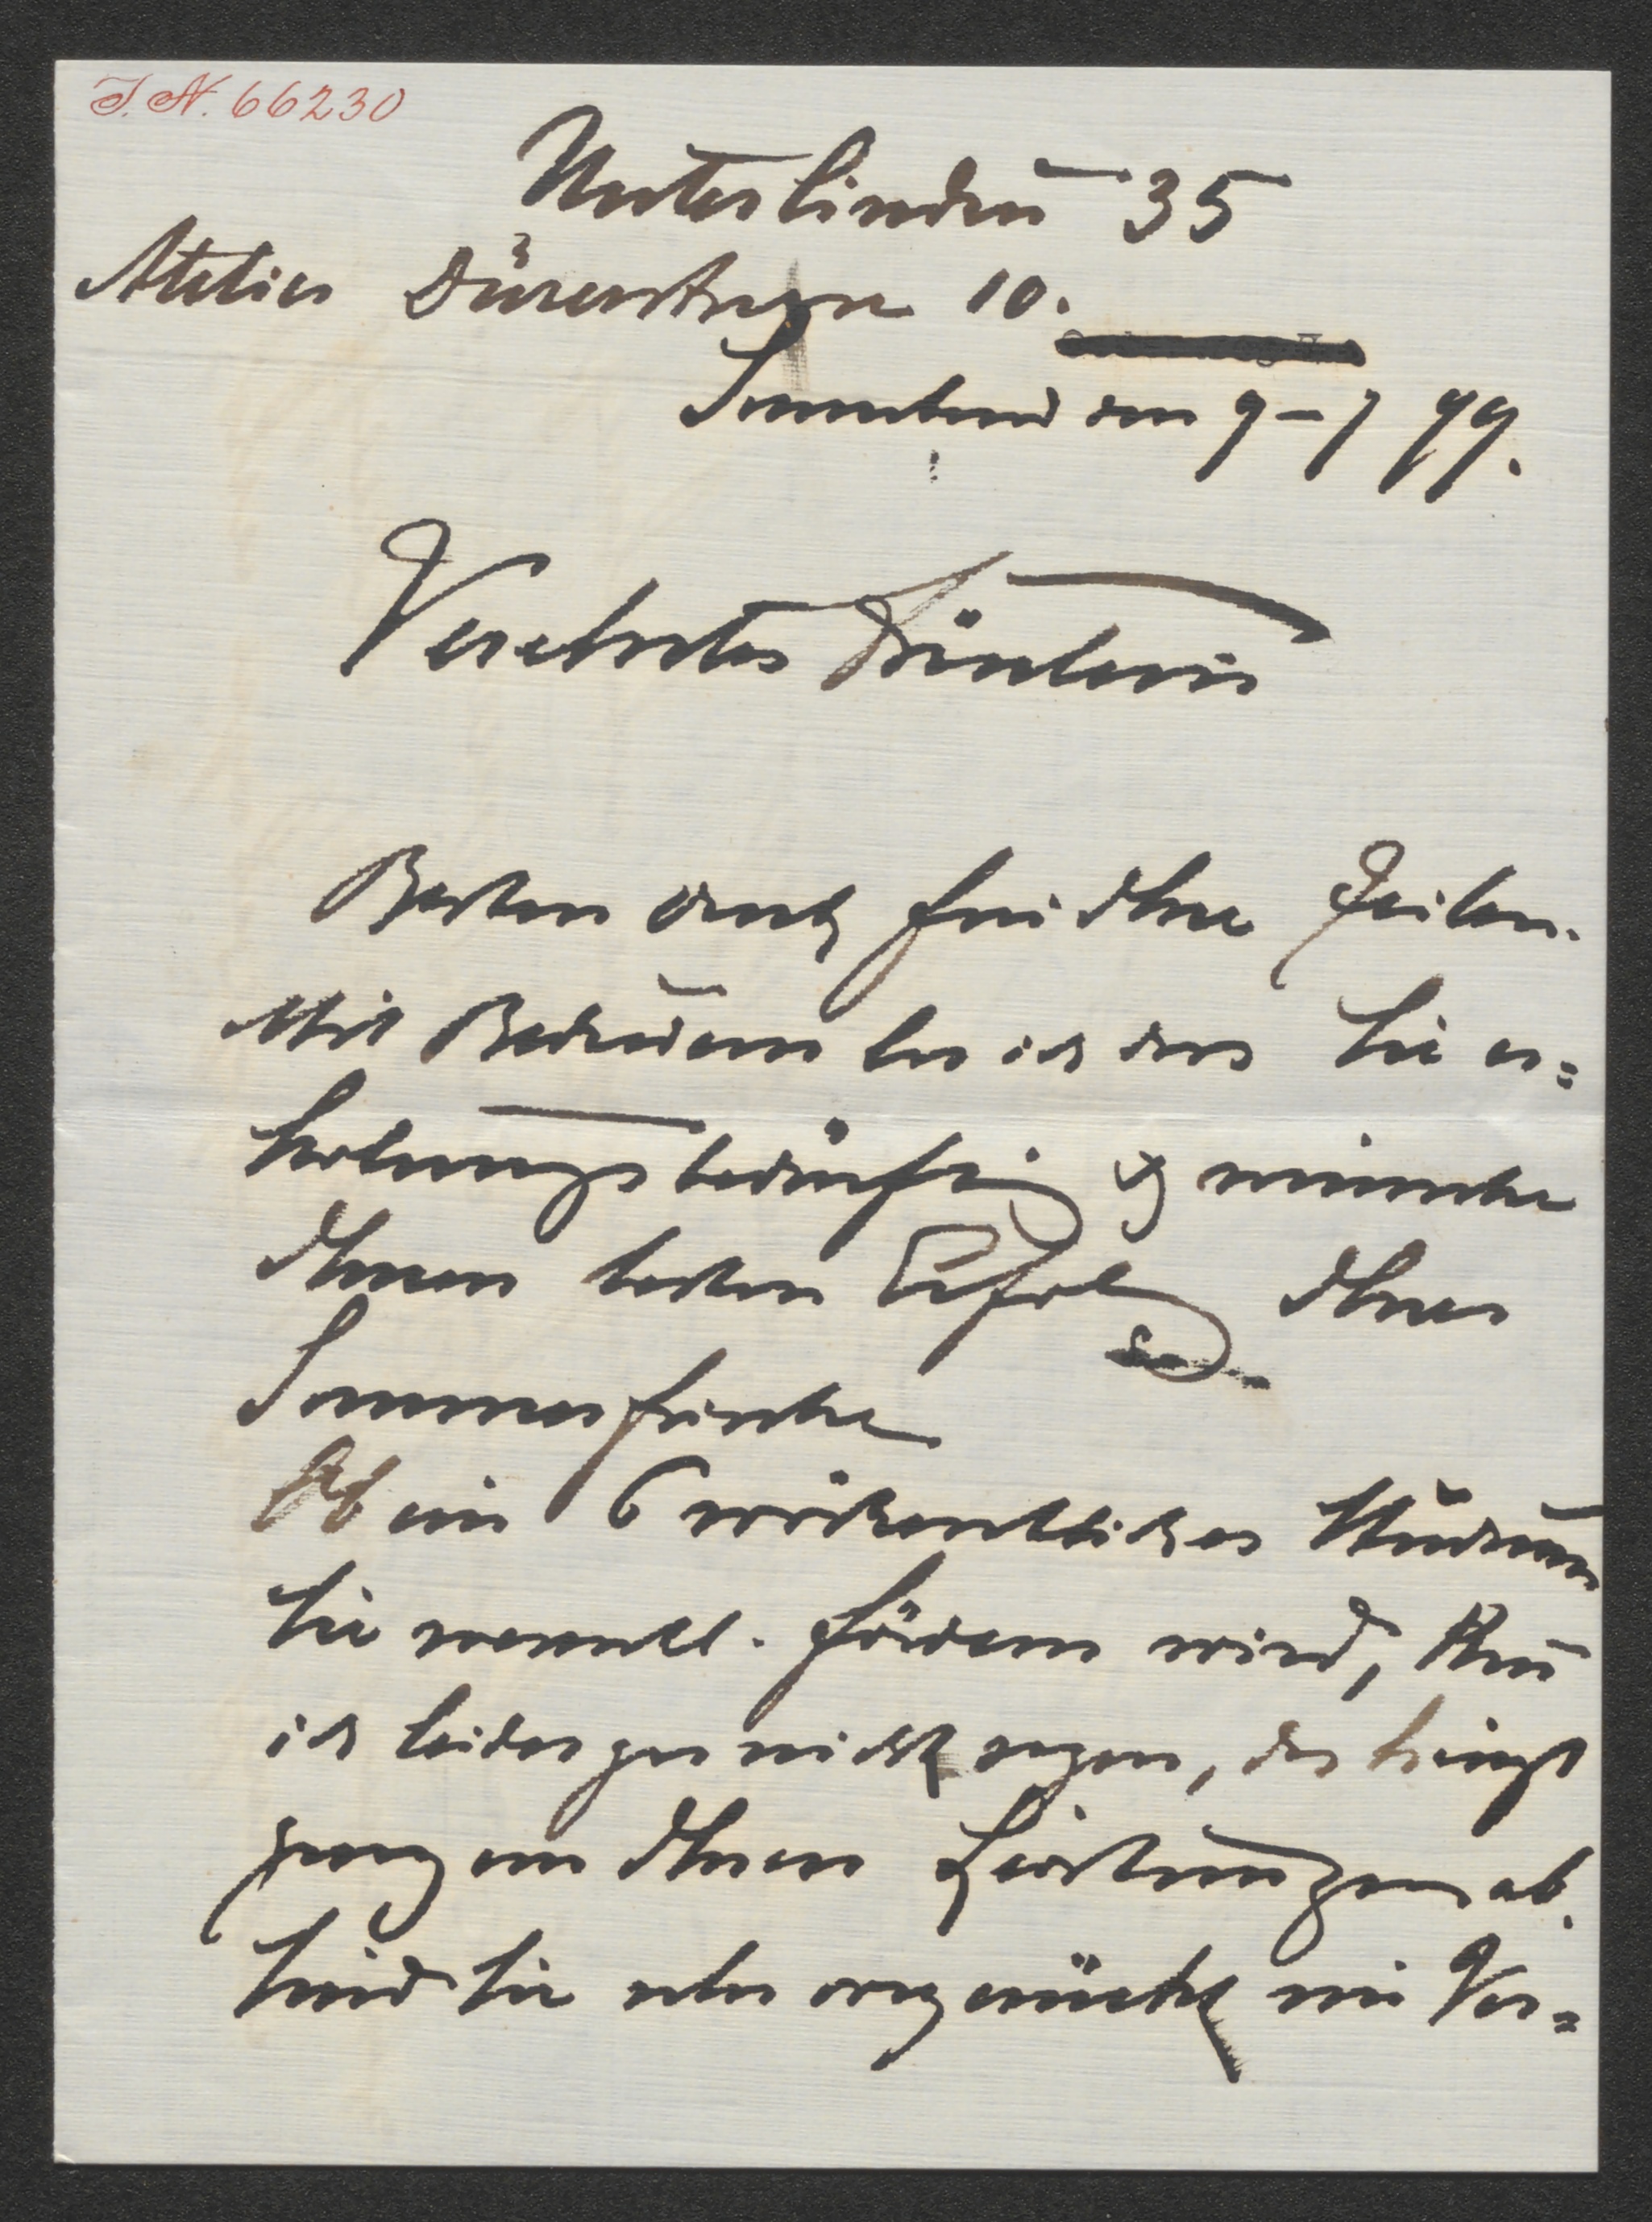 I.N. 66230
Unterlinden 35
Atelier Dürerstrasse 10.
Sonnabend den 9-7 99.
Verehrtes Fräulein
Besten Dank für Ihre Zeilen.
Mit Bedauern las ich dass Sie er=
holungsbedürftig & wünsche
Ihnen besten Erfolg Ihrer
Sommerfrische
Ob ein 6 wöchentliches Studium
Sie wesentl. fördern wird, kann
ich leider gar nicht sagen, das hängt
ganz von Ihren Leistungen ab.
Sind Sie sehr vorgerückt im Ver=